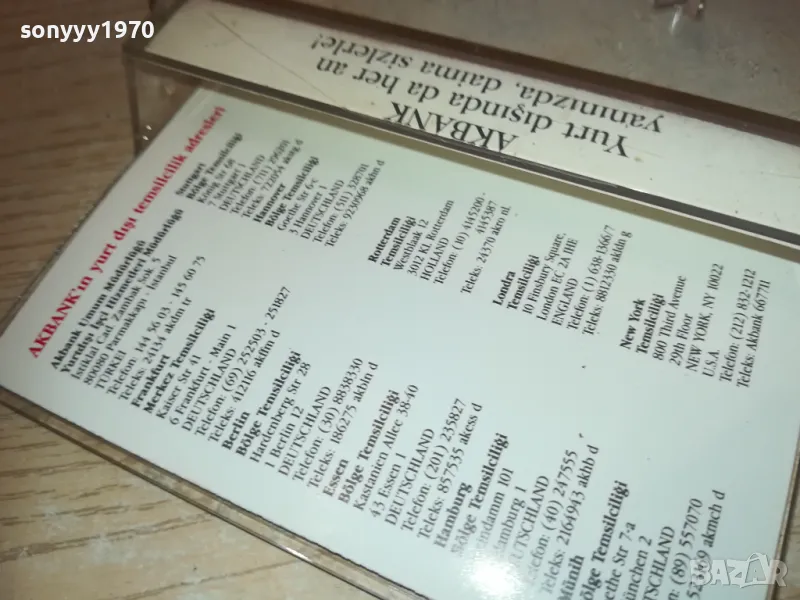 sonyyy1970
AKBANK
Yurt dışında da her an
yanınızda, daima sizlerle!
AKBANK'ın yurt dışı temsilcilik adresleri
Akbank Umum Müdürlüğü
Yurdışı İşçi Hizmetleri Müdürlüğü
İstiklal Cad. Zambak Sok. 5
80080 Parmakkapı - İstanbul
TÜRKEI
Telefon: 144 56 03 - 145 60 75
Teleks: 24134 akdm tr
Frankfurt
Merkez Temsilciliği
Kaiser Str 41
6 Frankfurt - Main 1
DEUTSCHLAND
Telefon: (69) 252503 - 251827
Teleks: 41216 akflm d
Berlin
Bölge Temsilciliği
Hardenberg str 28
1 Berlin 12
DEUTSCHLAND
Telefon: (30) 8838230
Teleks: 186275 akbln d
Essen
Bölge Temsilciliği
Kastanien Allee 38-40
43 Essen 1
DEUTSCHLAND
Telefon: (201) 235827
Teleks: 857535 akess d
Hamburg
Bölge Temsilciliği
ondamm 101
amburg 1
UTSCHLAND
efon: (40) 247555
eks: 2164943 akhb d
Münih
ölge Temsilciliği
the Str 7-a
ünchen 2
TSCHLAND
n: (89) 557070
akmch d
Stuttgart
Bölge Temsilciliği
König Str 68
7 Stuttgart 1
DEUTSCHLAND
Telefon: (711)
Teleks: 722954 akstg d
Hannover
Bölge Temsilciliği
Goethe Str 6-c
3 Hannover 1
DEUTSCHLAND
Telefon: (511) 328701
Teleks: 9230968 akhn d
Rotterdam
Temsilciliği
Westblaak 12
3012 KL Rotterdam
HOLLAND
Telefon: (10) 4145200 -
4145387
Teleks: 24370 akro nl.
Londra
Temsilciliği
10 Finsbury Square,
London EC 2A IHE
ENGLAND
Telefon: (1) 638-1366/7
Teleks: 8812330 akldn g
New York
Temsilciliği
800 Third Avenue
29th Floor
NEW YORK, NY 10022
U.S.A.
Telefon: (212) 832-1212
Teleks: Akbank 667711
bazar.bg